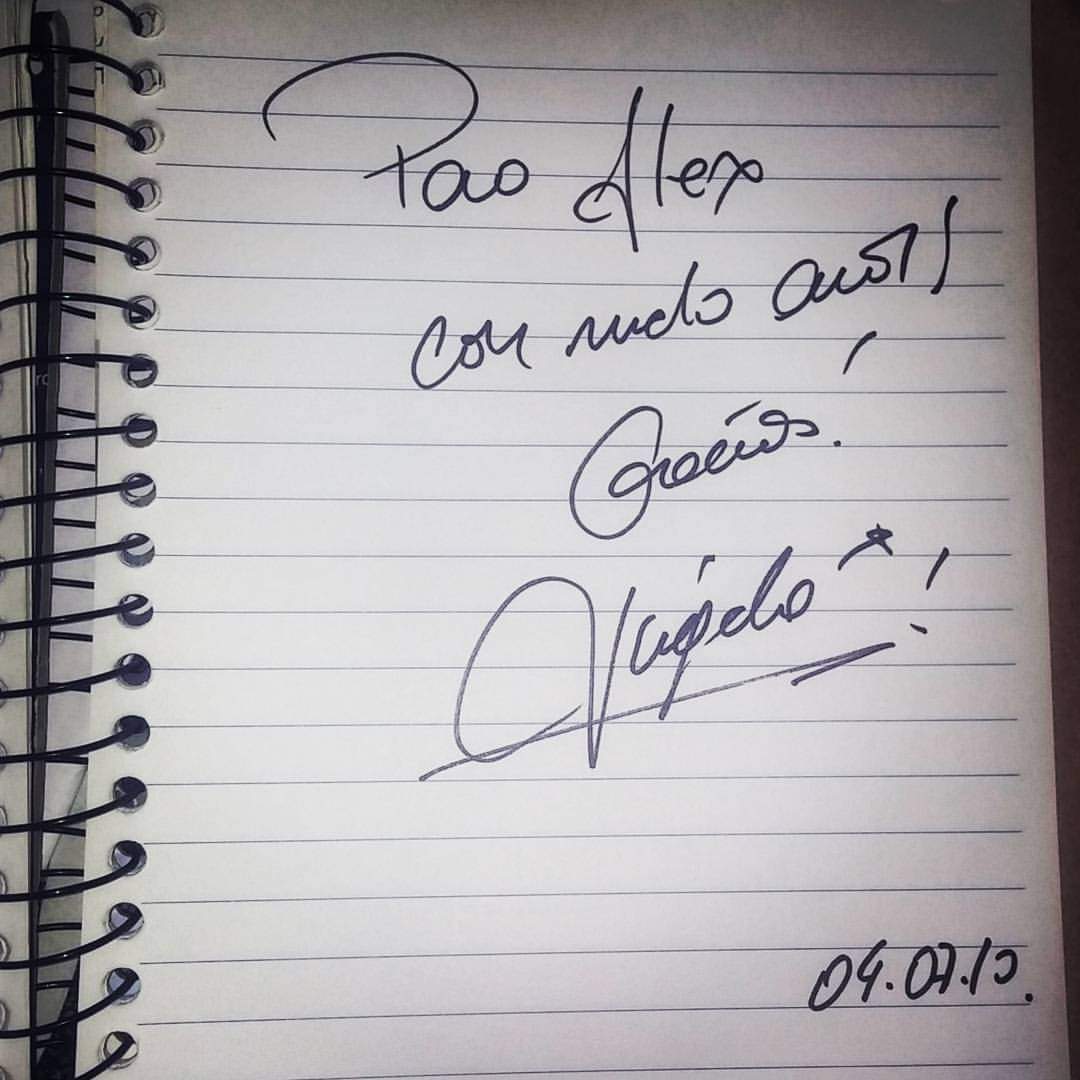 Para Alex
con mucho amor!
Gracias.
04.07.10.